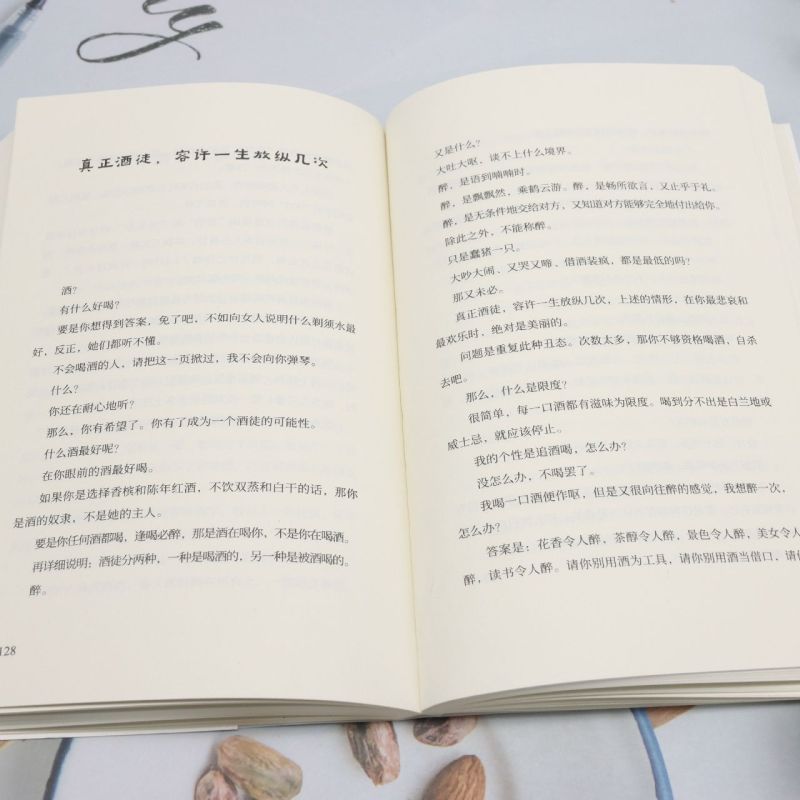 真正酒徒，容许一生放纵几次
酒？
有什么好喝？
要是你想得到答案，免了吧，不如向女人说明什么剃须水最
好，反正，她们都听不懂。
不会喝酒的人，请把这一页掀过，我不会向你弹琴。
什么？
你还在耐心地听？
那么，你有希望了。你有了成为一个酒徒的可能性。
什么酒最好呢？
在你眼前的酒最好喝。
如果你是选择香槟和陈年红酒，不饮双蒸和白干的话，那你
是酒的奴隶，不是她的主人。
要是你任何酒都喝，逢喝必醉，那是酒在喝你，不是你在喝酒。
再详细说明；酒徒分两种，一种是喝酒的，另一种是被酒喝的。
醉。
128
又是什么？
大吐大呕，谈不上什么境界。
醉，是语到喃喃时。
醉，是飘飘然，乘鹤云游。醉，是畅所欲言，又止乎于礼。
醉，是无条件地交给对方，又知道对方能够完全地付出给你。
除此之外，不能称醉。
只是蠢猪一只。
大吵大闹、又哭又啼、借酒装疯，都是最低的吗？
那又未必。
真正酒徒，容许一生放纵几次，上述的情形，在你最悲哀和
最欢乐时，绝对是美丽的。
问题是重复此种丑态。次数太多，那你不够资格喝酒，自杀
去吧。
那么，什么是限度？
很简单，每一口酒都有滋味为限度。喝到分不出是白兰地或
威士忌，就应该停止。
我的个性是追酒喝，怎么办？
没怎么办，不喝罢了。
我喝一口酒便作呕，但是又很向往醉的感觉，我想醉一次，
怎么办？
答案是：花香令人醉，茶醇令人醉，景色令人醉，美女令人
醉，读书令人醉。请你别用酒为工具，请你别用酒当借口，请